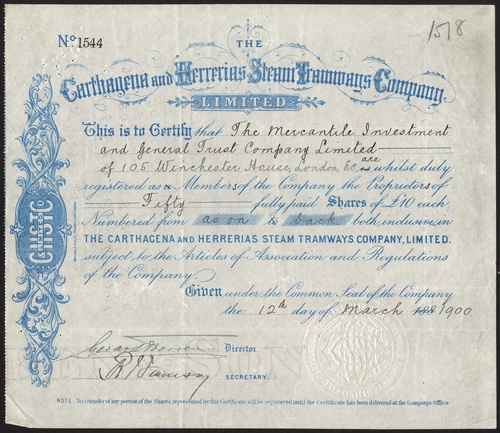 1518
No. 1544
THE
Carthagena and Herrerias Steam Tramways Company
LIMITED.
This is to Certify that The Mercantile Investment
and General Trust Company Limited
of 105 Winchester House, London EC are is whilst duly
registered as a Members of the Company the Proprietors of
Fifty fully paid Shares of £10 each
Numbered from as on to back both inclusive, in
THE CARTHAGENA AND HERRERIAS STEAM TRAMWAYS COMPANY, LIMITED.
subject to the Articles of Association and Regulations
of the Company.
Given under the Common Seal of the Company
the 12th day of March 188 1900.
Director.
SECRETARY.
NOTE. No transfer of any portion of the Shares represented by this Certificate will be registered until the Certificate has been delivered at the Company's Office
CHSTC